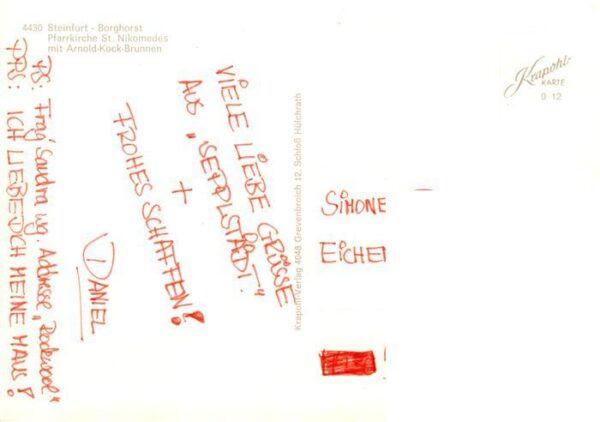 4430 Steinfurt - Borghorst
Pfarrkirche St. Nikomedes
mit Arnold-Kock-Brunnen
VIELE LIEBE GRÜSSE
AUS „SEPPLSTADT“
+
FROHES SCHAFFEN!
DANIEL
PS: Frag' Sandra wg. Addresse „Rockwool“
PPS: ICH LIEBE DICH MEINE MAUS!
Krapohl-Verlag 4048 Grevenbroich 12, Schloß Hülchrath
Krapohl-
KARTE
9 12
SIMONE
EICHE